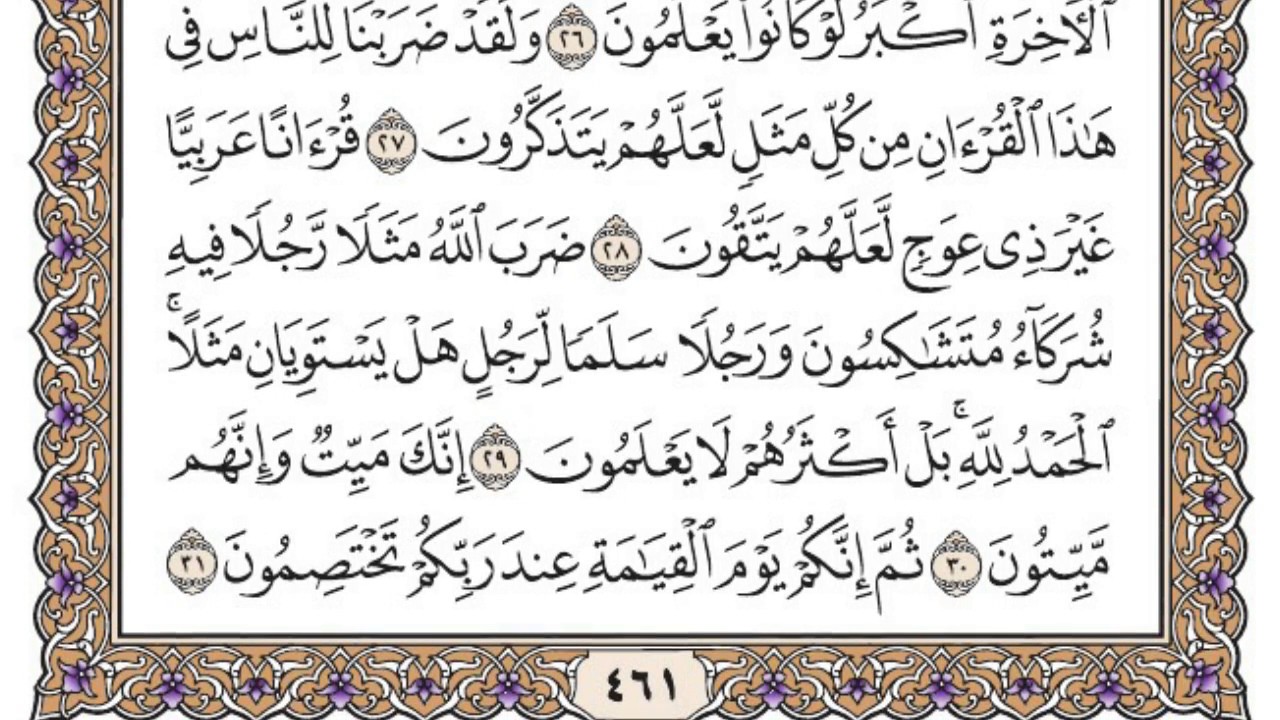 ٱلْأٓخِرَةِ أَكْبَرُ لَوْ كَانُوا۟ يَعْلَمُونَ ٢٦ وَلَقَدْ ضَرَبْنَا لِلنَّاسِ فِى
هَـٰذَا ٱلْقُرْءَانِ مِن كُلِّ مَثَلٍ لَّعَلَّهُمْ يَتَذَكَّرُونَ ٢٧ قُرْءَانًا عَرَبِيًّا
غَيْرَ ذِى عِوَجٍ لَّعَلَّهُمْ يَتَّقُونَ ٢٨ ضَرَبَ ٱللَّهُ مَثَلًا رَّجُلًا فِيهِ
شُرَكَآءُ مُتَشَـٰكِسُونَ وَرَجُلًا سَلَمًا لِّرَجُلٍ هَلْ يَسْتَوِيَانِ مَثَلًا ۚ
ٱلْحَمْدُ لِلَّهِ ۚ بَلْ أَكْثَرُهُمْ لَا يَعْلَمُونَ ٢٩ إِنَّكَ مَيِّتٌ وَإِنَّهُم
مَّيِّتُونَ ٣٠ ثُمَّ إِنَّكُمْ يَوْمَ ٱلْقِيَـٰمَةِ عِندَ رَبِّكُمْ تَخْتَصِمُونَ ٣١
٤٦١